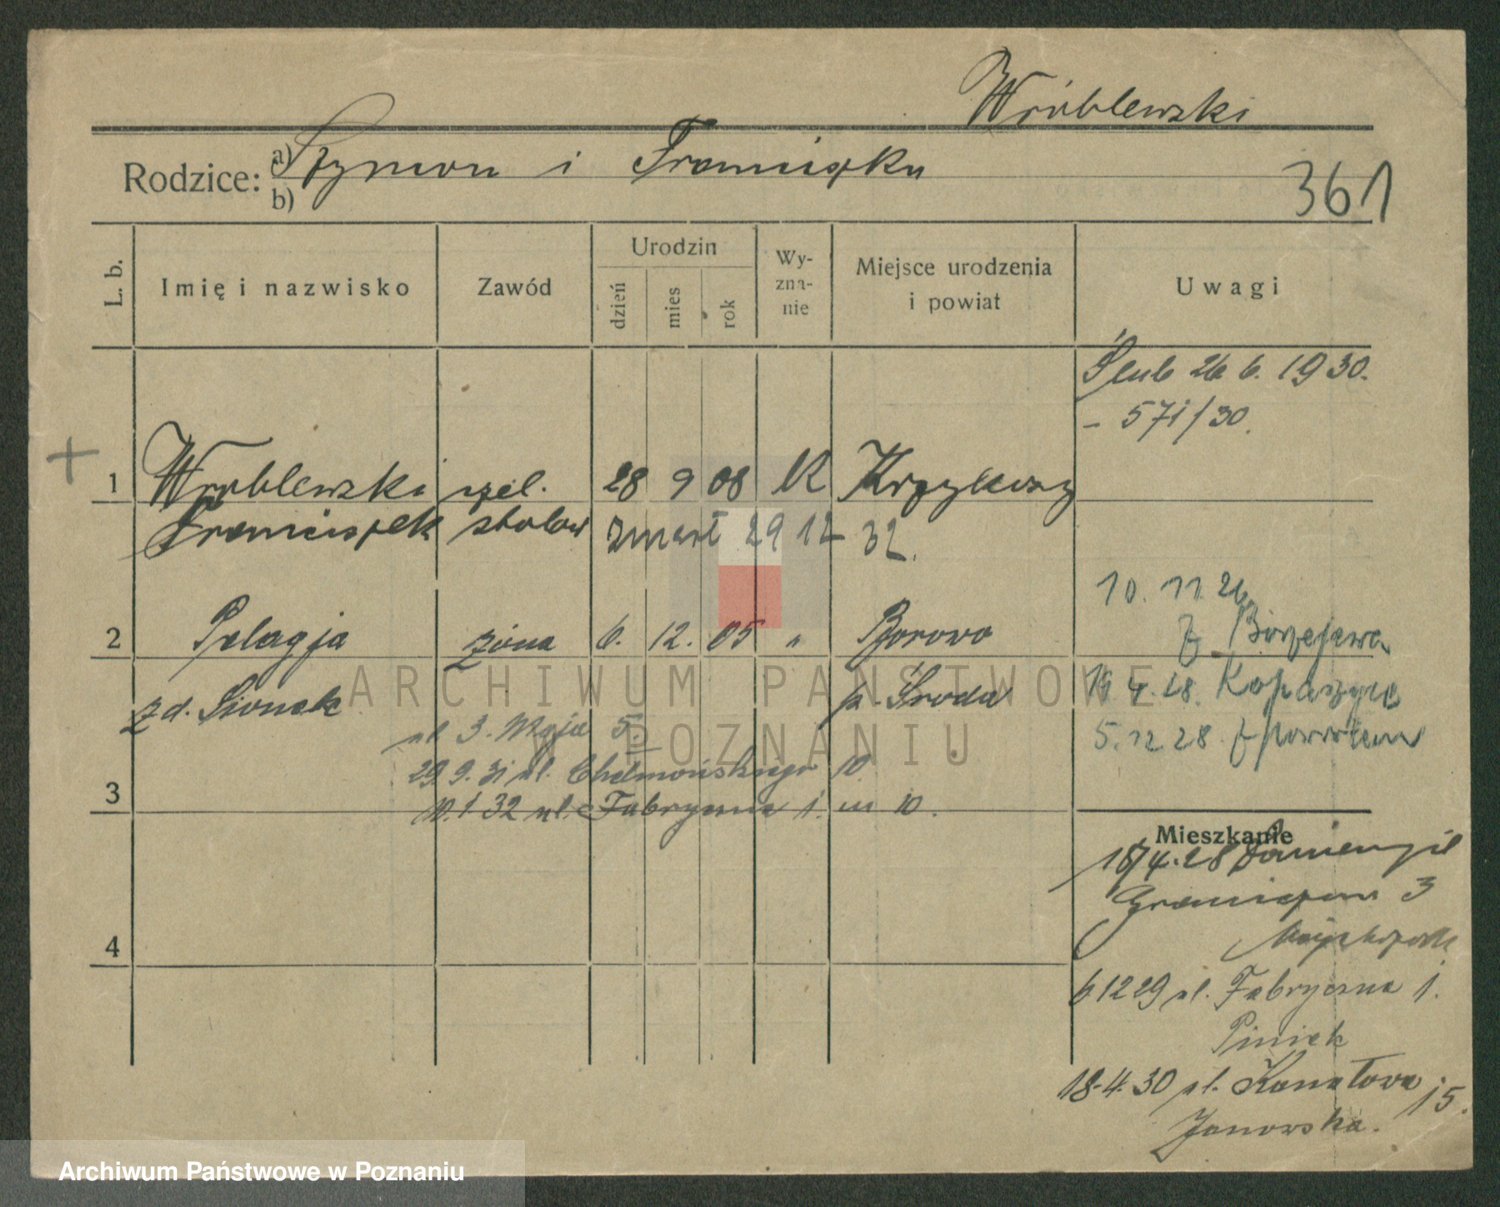 Wróblewski
Rodzice: a) Szymon i Franciszka
b)
361
L. b.
Imię i nazwisko
Zawód
Urodzin
dzień
mies
rok
Wy-
zna-
nie
Miejsce urodzenia
i powiat
Uwagi
Ślub 26 6. 1930.
- 571/30.
+
1 Wróblewski czel. 28 9 08 K
Franciszek stolar
zmarł 29 12 32.
10. 11. 26
2 Pelagja żona 6. 12. 05 " Borowo
z
zd. Sionek p. Środa
4. 28.
ul 3. Maja 5.
5. 12 28. z powrotem
29 9. 31 ul. Chełmońskiego 10
3 10. 1 32 ul. Fabryczna 1. m 10.
Mieszkanie
16/4.28
3
4
6 12 29 ul. Fabryczna 1.
18.4.30 ul. Kanałowa 15.
Janowska.
ARCHIWUM PAŃSTWOWE
W POZNANIU
Archiwum Państwowe w Poznaniu